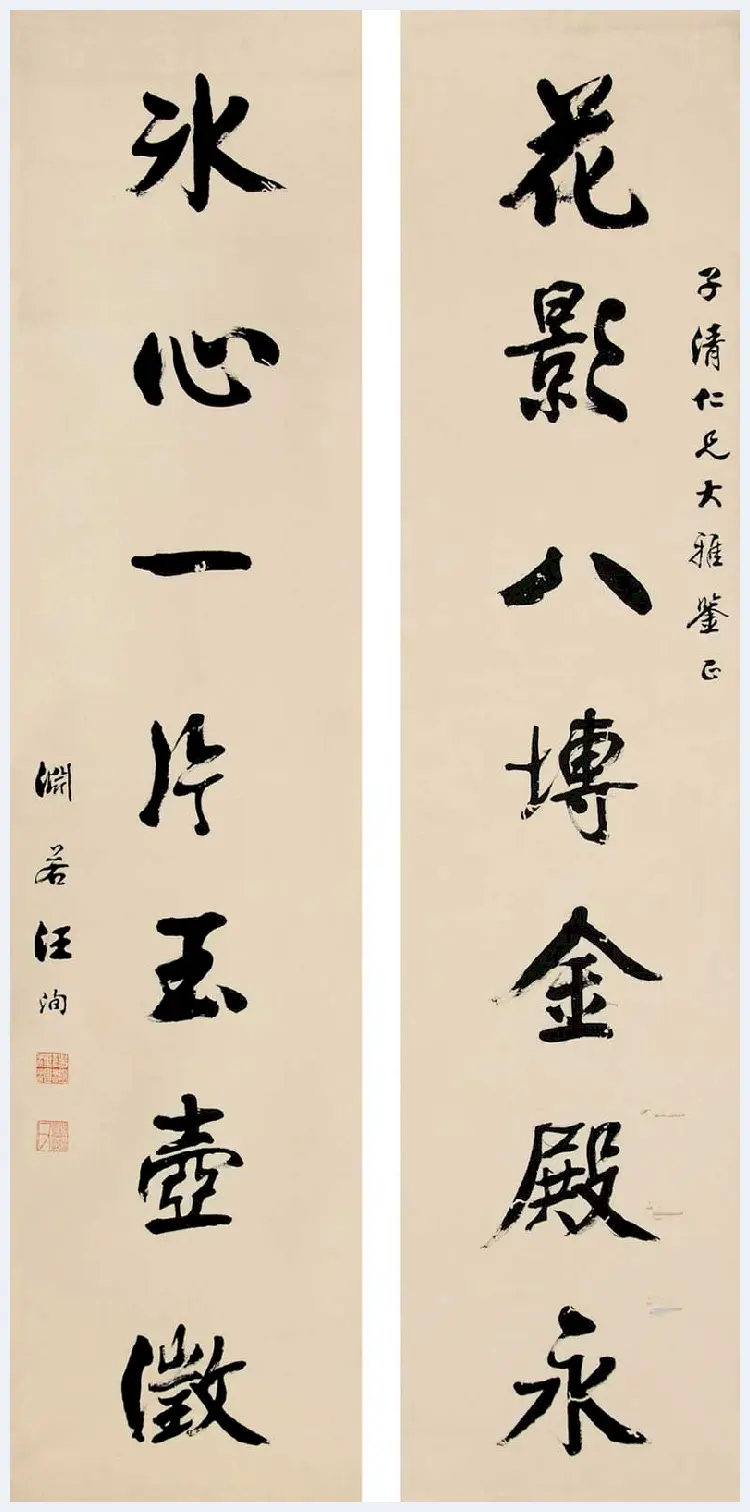 子清仁兄大雅鑒正
花影八塼金殿永
冰心一片玉壺徵
淵若汪洵